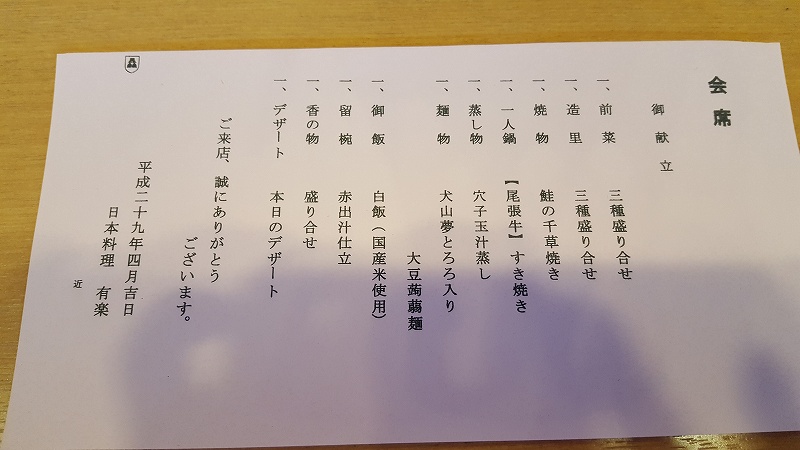 会席
御献立
一、前菜 三種盛り合せ
一、造里 三種盛り合せ
一、焼物 鮭の千草焼き
一、一人鍋 【尾張牛】すき焼き
一、蒸し物 穴子玉汁蒸し
一、麺物 犬山夢とろろ入り
大豆蒟蒻麺
一、御飯 白飯（国産米使用）
一、留椀 赤出汁仕立
一、香の物 盛り合せ
一、デザート 本日のデザート
ご来店、誠にありがとう
ございます。
平成二十九年四月吉日
日本料理 有楽
近